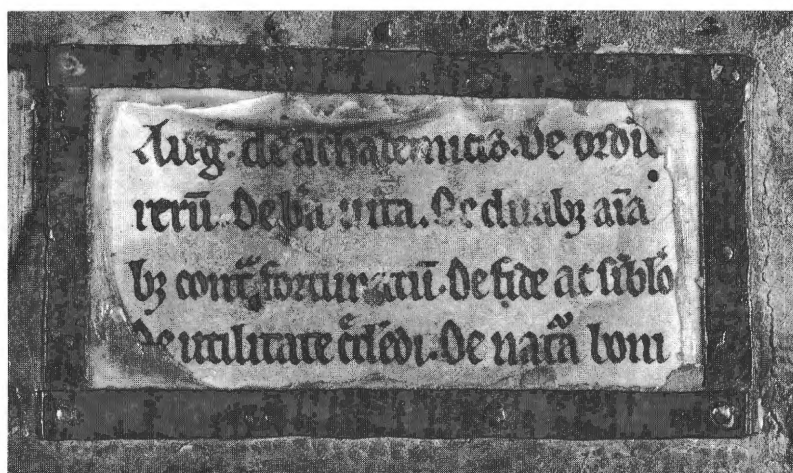 Aug. de achatemicis. De ordīe
rerū. De b̄a uita. De duabꝫ aīa
bꝫ cont͛ fortunatū. De fide ac sīblo
De utilitate c͛dēdi. De nat͛a boni